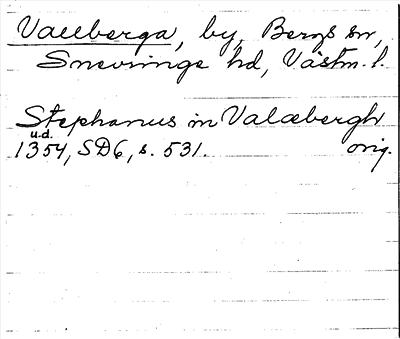 Valleberga, by, Bergs sn,
Snevringe hd, Västm. l.
Stephanus in Valæbergh
u.d.
1354, SD6, s. 531. orig.